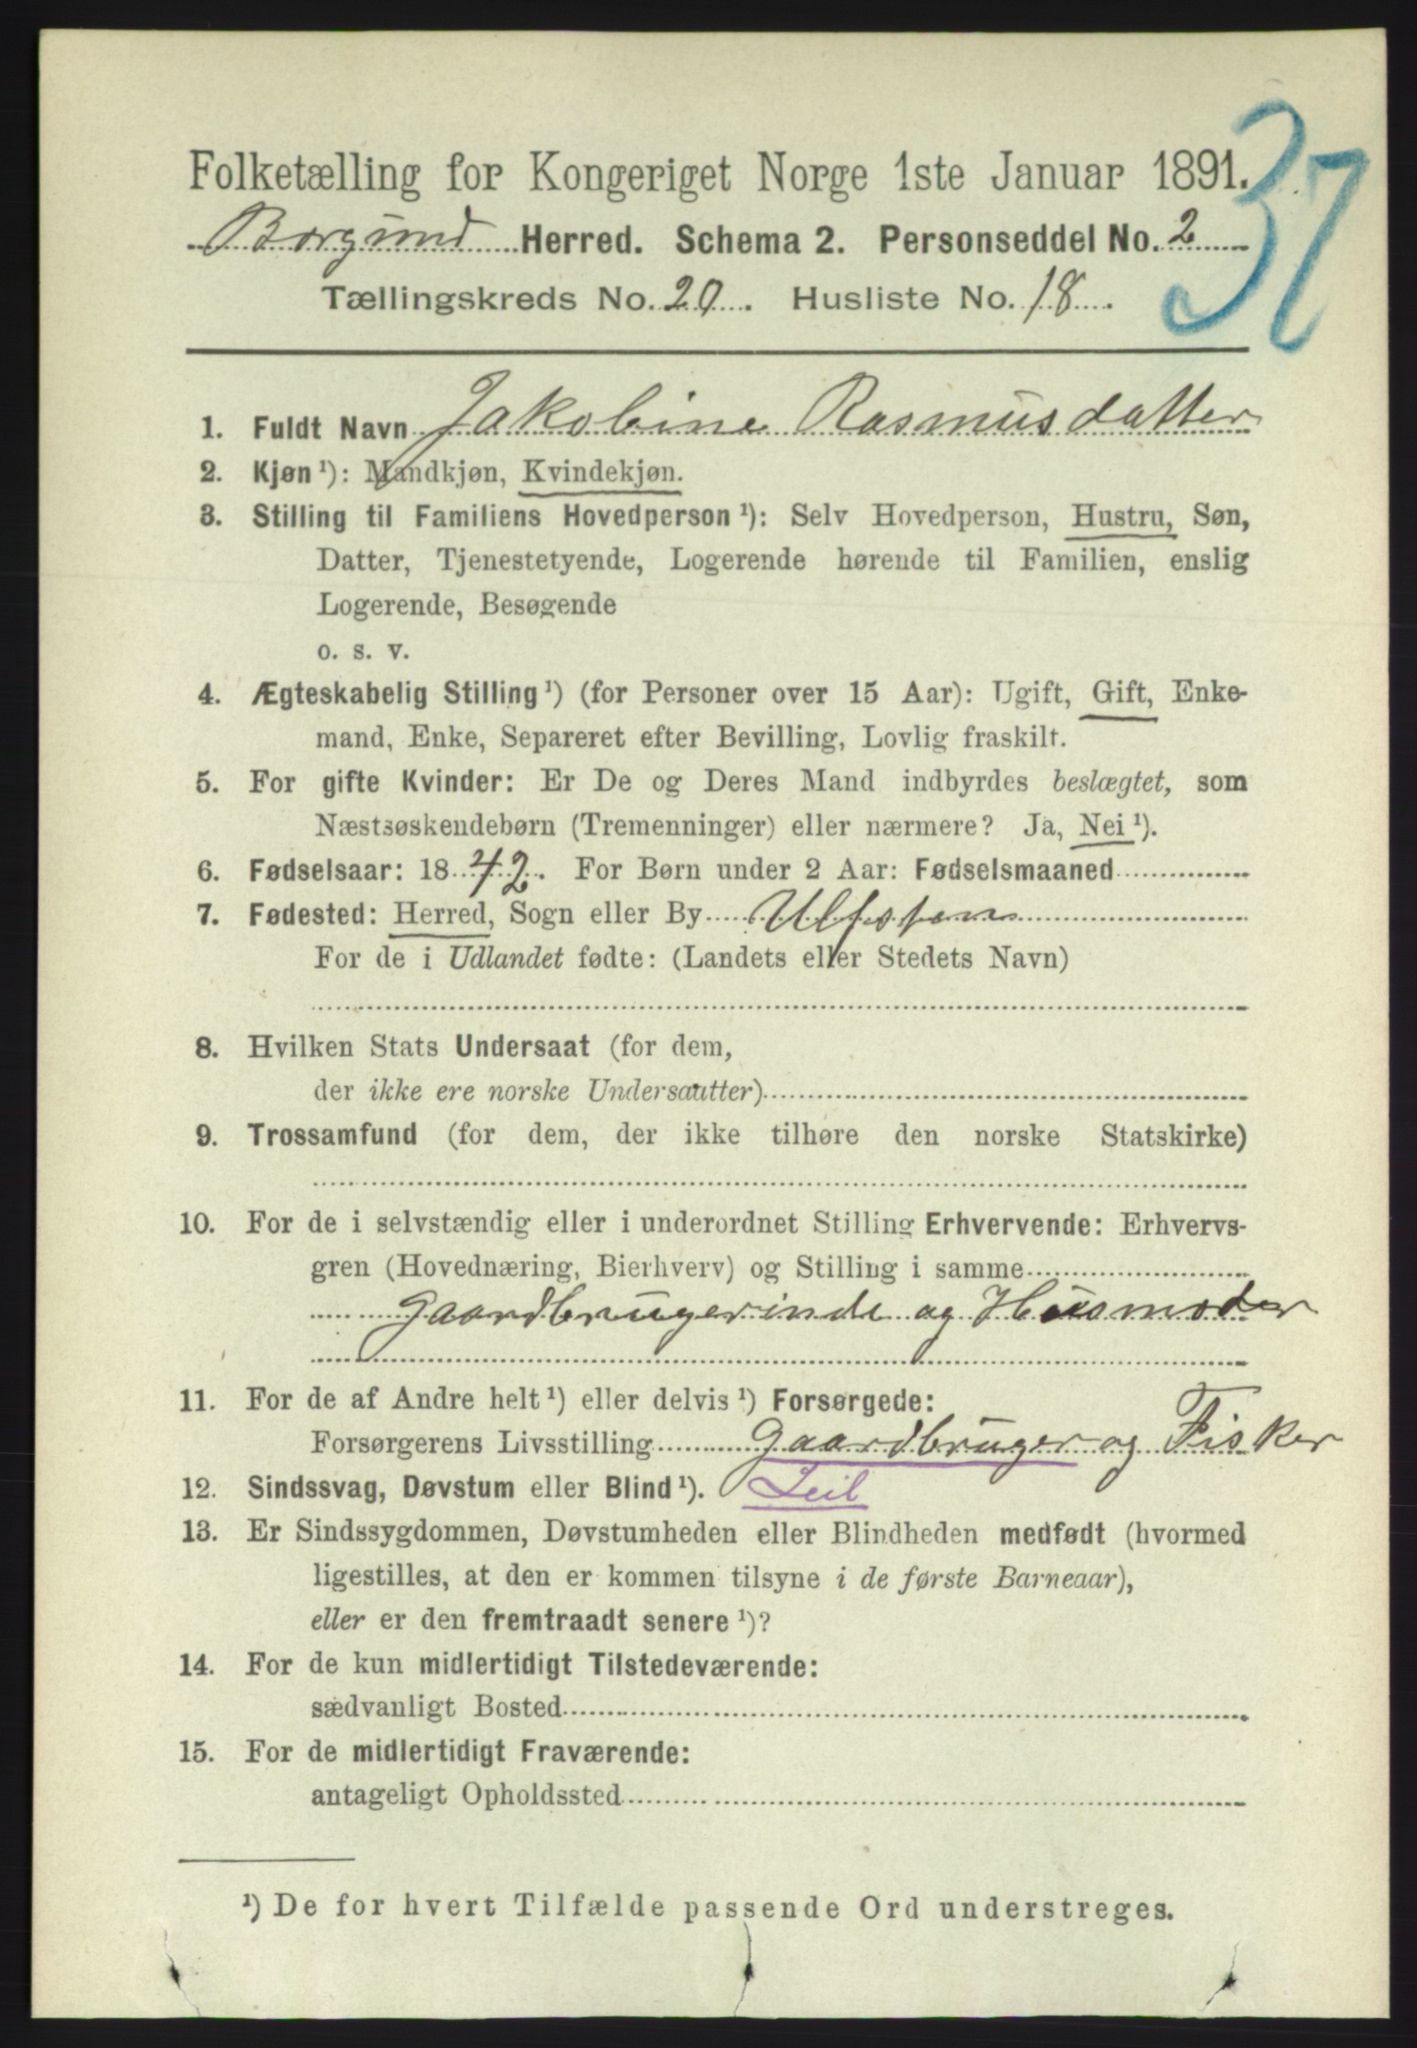 Folketælling for Kongeriget Norge 1ste Januar 1891.
37
Borgund Herred. Schema 2. Personseddel No. 2
Tællingskreds No. 20. Husliste No. 18.
1. Fuldt Navn Jakobine Rasmusdatter
2. Kjøn ¹): Mandkjøn, Kvindekjøn.
3. Stilling til Familiens Hovedperson ¹): Selv Hovedperson, Hustru, Søn,
Datter, Tjenestetyende, Logerende hørende til Familien, enslig
Logerende, Besøgende
o. s. v.
4. Ægteskabelig Stilling ¹) (for Personer over 15 Aar): Ugift, Gift, Enke-
mand, Enke, Separeret efter Bevilling, Lovlig fraskilt.
5. For gifte Kvinder: Er De og Deres Mand indbyrdes beslægtet, som
Næstsøskendebørn (Tremenninger) eller nærmere? Ja, Nei ¹).
6. Fødselsaar: 1842. For Børn under 2 Aar: Fødselsmaaned
7. Fødested: Herred, Sogn eller By Ulfsten
For de i Udlandet fødte: (Landets eller Stedets Navn)
8. Hvilken Stats Undersaat (for dem,
der ikke ere norske Undersaatter)
9. Trossamfund (for dem, der ikke tilhøre den norske Statskirke)
10. For de i selvstændig eller i underordnet Stilling Erhvervende: Erhvervs-
gren (Hovednæring, Bierhverv) og Stilling i samme
Gaardbrugerinde og Husmoder
11. For de af Andre helt ¹) eller delvis ¹) Forsørgede:
Forsørgerens Livsstilling Gaardbruger og Fisker
12. Sindssvag, Døvstum eller Blind ¹). Leil
13. Er Sindssygdommen, Døvstumheden eller Blindheden medfødt (hvormed
ligestilles, at den er kommen tilsyne i de første Barneaar),
eller er den fremtraadt senere ¹)?
14. For de kun midlertidigt Tilstedeværende:
sædvanligt Bosted
15. For de midlertidigt Fraværende:
antageligt Opholdssted
¹) De for hvert Tilfælde passende Ord understreges.